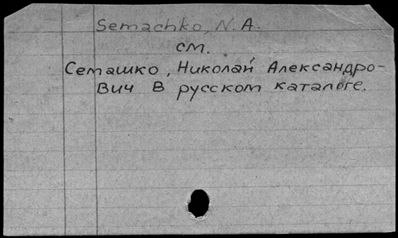 Semachko, N. A.
см.
Семашко, Николай Александро-
вич в русском каталоге.